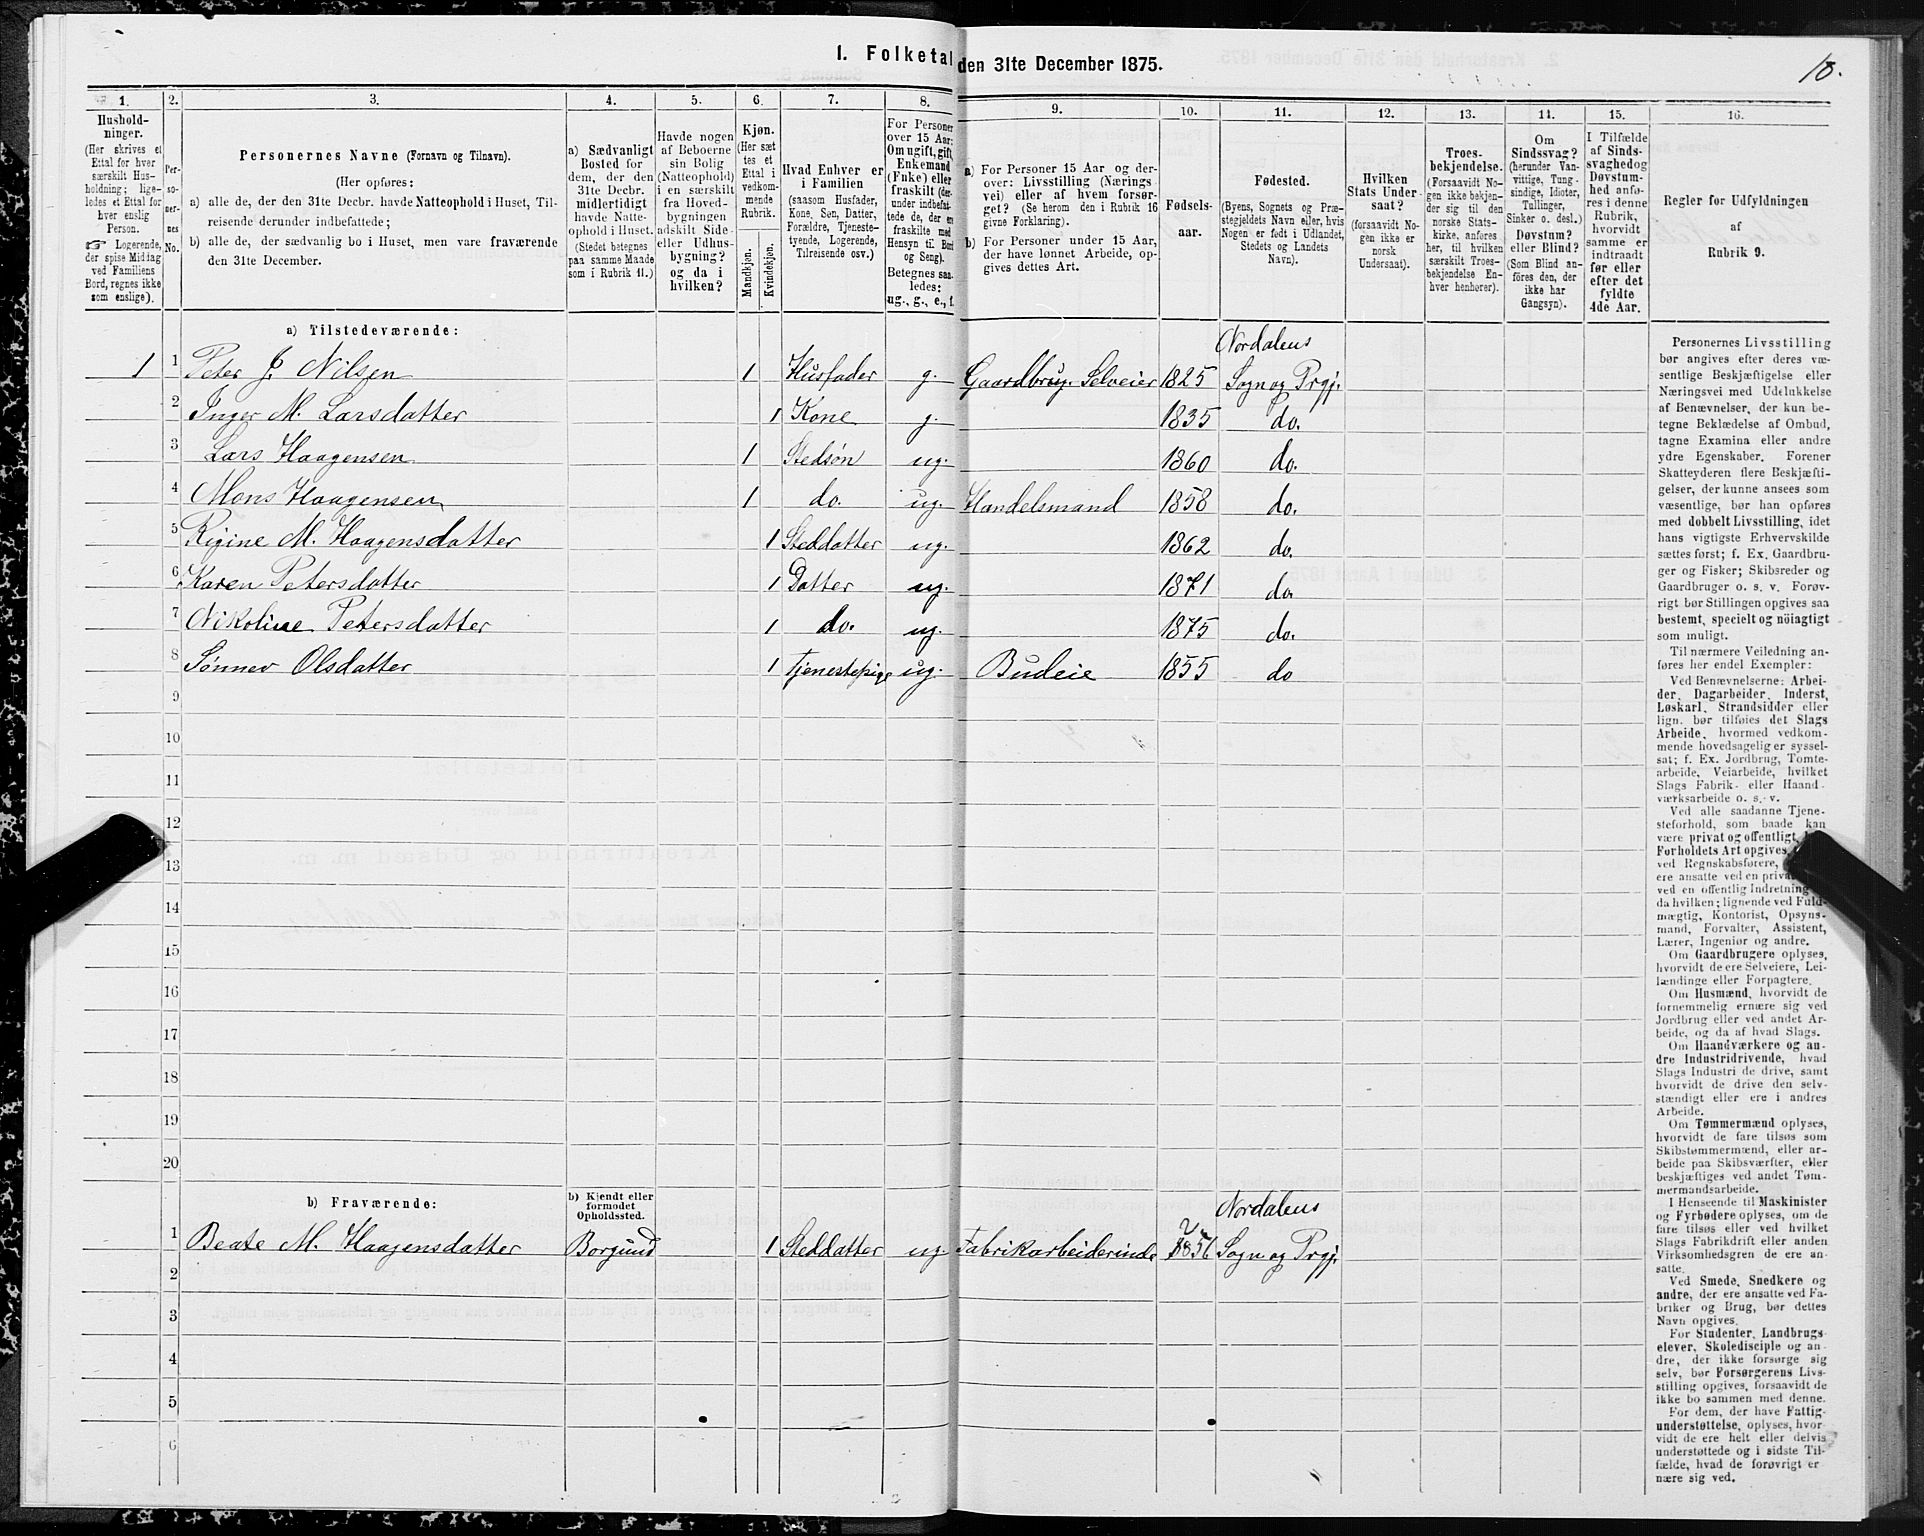 1. Folketal den 31te December 1875.
10.
1.
2.
3.
4.
5.
6.
7.
8.
9.
10.
11.
12.
13.
14.
15.
16.
Hushold-
ninger.
(Her skrives et
Ettal for hver
særskilt Hus-
holdning; lige-
ledes et Ettal for
hver enslig
Person.
☞ Logerende,
der spise Middag
ved Familiens
Bord, regnes ikke
som enslige).
Per-
so-
ner-
nes
No.
Personernes Navne (Fornavn og Tilnavn).
(Her opføres:
a) alle de, der den 31te Decbr. havde Natteophold i Huset, Til-
reisende derunder indbefattede;
b) alle de, der sædvanlig bo i Huset, men vare fraværende
den 31te December.
a) Sædvanligt
Bosted for
dem, der den
31te Decbr.
midlertidigt
havde Natte-
ophold i Huset.
(Stedet betegnes
paa samme Maade
som i Rubrik 11.)
Havde nogen
af Beboerne
sin Bolig
(Natteophold)
i en særskilt
fra Hoved-
bygningen
adskilt Side-
eller Udhus-
bygning?
og da i
hvilken?
Kjøn.
(Her sæt
tes et
Ettal i
vedkom-
mende
Rubrik.
Mandkjøn.
Kvindekjøn.
Hvad Enhver er
i Familien
(saasom Husfader,
Kone, Søn, Datter,
Forældre, Tjeneste-
tyende, Logerende,
Tilreisende osv.)
For Personer
over 15 Aar:
Om ugift, gift,
Enkemand
(Enke) eller
fraskilt (der-
under indbefat-
tede de, der er
fraskilte med
Hensyn til Bord
og Seng).
Betegnes saa-
ledes:
ug., g., e., f.
a) For Personer 15 Aar og der-
over: Livsstilling (Nærings-
vei) eller af hvem forsør-
get? (Se herom den i Rubrik 16
givne Forklaring).
b) For Personer under 15 Aar,
der have lønnet Arbeide, op-
gives dettes Art.
Fødsels-
aar.
Fødested.
(Byens, Sognets og Præ-
stegjeldets Navn eller, hvis
Nogen er født i Udlandet,
Stedets og Landets
Navn).
Hvilken
Stats Under-
saat?
(forsaavidt No-
gen ikke er
norsk
Undersaat).
Troes-
bekjendelse.
(Forsaavidt No-
gen ikke bekjen-
der sig til den
norske Stats-
kirke, anføres
her, til hvilken
særskilt Troes-
bekjendelse En-
hver henhører).
Om
Sindssvag?
(herunder Van-
vittige, Tung-
sindige, Idioter,
Tullinger,
Sinker o. desl.)
Døvstum?
eller Blind?
(Som Blind an-
føres den, der
ikke har
Gangsyn).
I Tilfælde
af Sinds-
svaghed og
Døvstum-
hed anfø-
res i denne
Rubrik,
hvorvidt
samme er
indtraadt
før eller
efter det
fyldte
4de Aar.
Regler for Udfyldningen
af
Rubrik 9.
a) Tilstedeværende:
Nordalens
1 1 Peter J. Nilsen 1 Husfader g. Gaardbrug. Selveier 1825 Sogn og Prgj.
2 Inger M. Larsdatter 1 Kone g. 1835 do.
3 Lars Haagensen 1 Stedsøn ug. 1860 do.
4 Mons Haagensen 1 do. ug. Handelsmand 1858 do.
5 Rigine M. Haagensdatter 1 Steddatter ug. 1862 do.
6 Karen Petersdatter 1 Datter ug. 1871 do.
7 Nikoline Petersdatter 1 do. ug. 1875 do.
8 Sønnev Olsdatter 1 Tjenestepige ug. Budeie 1855 do
9
10
11
12
13
14
15
16
17
18
19
20
b) Fraværende:
b) Kjendt eller
formodet
Opholdssted.
Nordalens
1 Beate M. Haagensdatter Borgund 1 Steddatter ug. Fabrikarbeiderinde 1856 Sogn og Prgj.
2
3
4
5
6
Personernes Livsstilling
bør angives efter deres væ-
sentlige Beskjæftigelse eller
Næringsvei med Udelukkelse
af Benævnelser, der kun be-
tegne Beklædelse af Ombud,
tagne Examina eller andre
ydre Egenskaber. Forener
Skatteyderen flere Beskjæfti-
gelser, der kunne ansees som
væsentlige, bør han opføres
med dobbelt Livsstilling, idet
hans vigtigste Erhvervskilde
sættes først; f. Ex. Gaardbru-
ger og Fisker; Skibsreder og
Gaardbruger o. s. v. Forøv-
rigt bør Stillingen opgives saa
bestemt, specielt og nöiagtigt
som muligt.
Til nærmere Veiledning an-
føres her endel Exempler:
Ved Benævnelserne: Arbei-
der, Dagarbeider, Inderst,
Løskarl, Strandsidder eller
lign. bør tilføies det Slags
Arbeide, hvormed vedkom-
mende hovedsagelig er syssel-
sat; f. Ex. Jordbrug, Tomte-
arbeide, Veiarbeide, hvilket
Slags Fabrik- eller Haand-
værksarbeide o. s. v.
Ved alle saadanne Tjene-
steforhold, som baade kan
være privat og offentligt,
Forholdets Art opgives,
ved Regnskabsførere,
ere ansatte ved en
ved en offentlig Indretning
da hvilken; lignende ved Fuld-
mægtig, Kontorist, Opsyns-
mand, Forvalter, Assistent,
Lærer, Ingeniør og andre.
Om Gaardbrugere oplyses,
hvorvidt de ere Selveiere, Lei-
lændinge eller Forpagtere.
Om Husmænd, hvorvidt de
fornemmelig ernære sig ved
Jordbrug eller ved andet Ar-
beide, og da af hvad Slags.
Om Haandværkere og an-
dre Industridrivende, hvad
Slags Industri de drive, samt
hvorvidt de drive den selv-
stændigt eller ere i andres
Arbeide.
Om Tømmermænd oplyses,
hvorvidt de fare tilsøs som
Skibstømmermænd, eller ar-
beide paa Skibsværfter, eller
beskjæftiges ved andet Tøm-
mermandsarbeide.
I Henseende til Maskinister
og Fyrbødere oplyses, om de
fare tilsøs eller ved hvilket
Slags Fabrikdrift eller anden
Virksomhedsgren de ere an-
satte.
Ved Smede, Snedkere og
andre, der ere ansatte ved Fa-
briker og Brug, bør dettes
Navn opgives.
For Studenter, Landbrugs-
elever, Skoledisciple og an-
dre, der ikke forsørge sig
selv, bør Forsørgerens Livs-
stilling opgives, forsaavidt de
ikke bo sammen med denne.
For dem, der have Fattig-
understøttelse, oplyses, hvor-
vidt de ere helt eller delvis
understøttede og i sidste Til-
fælde, hvad de forøvrigt er-
nære sig ved.